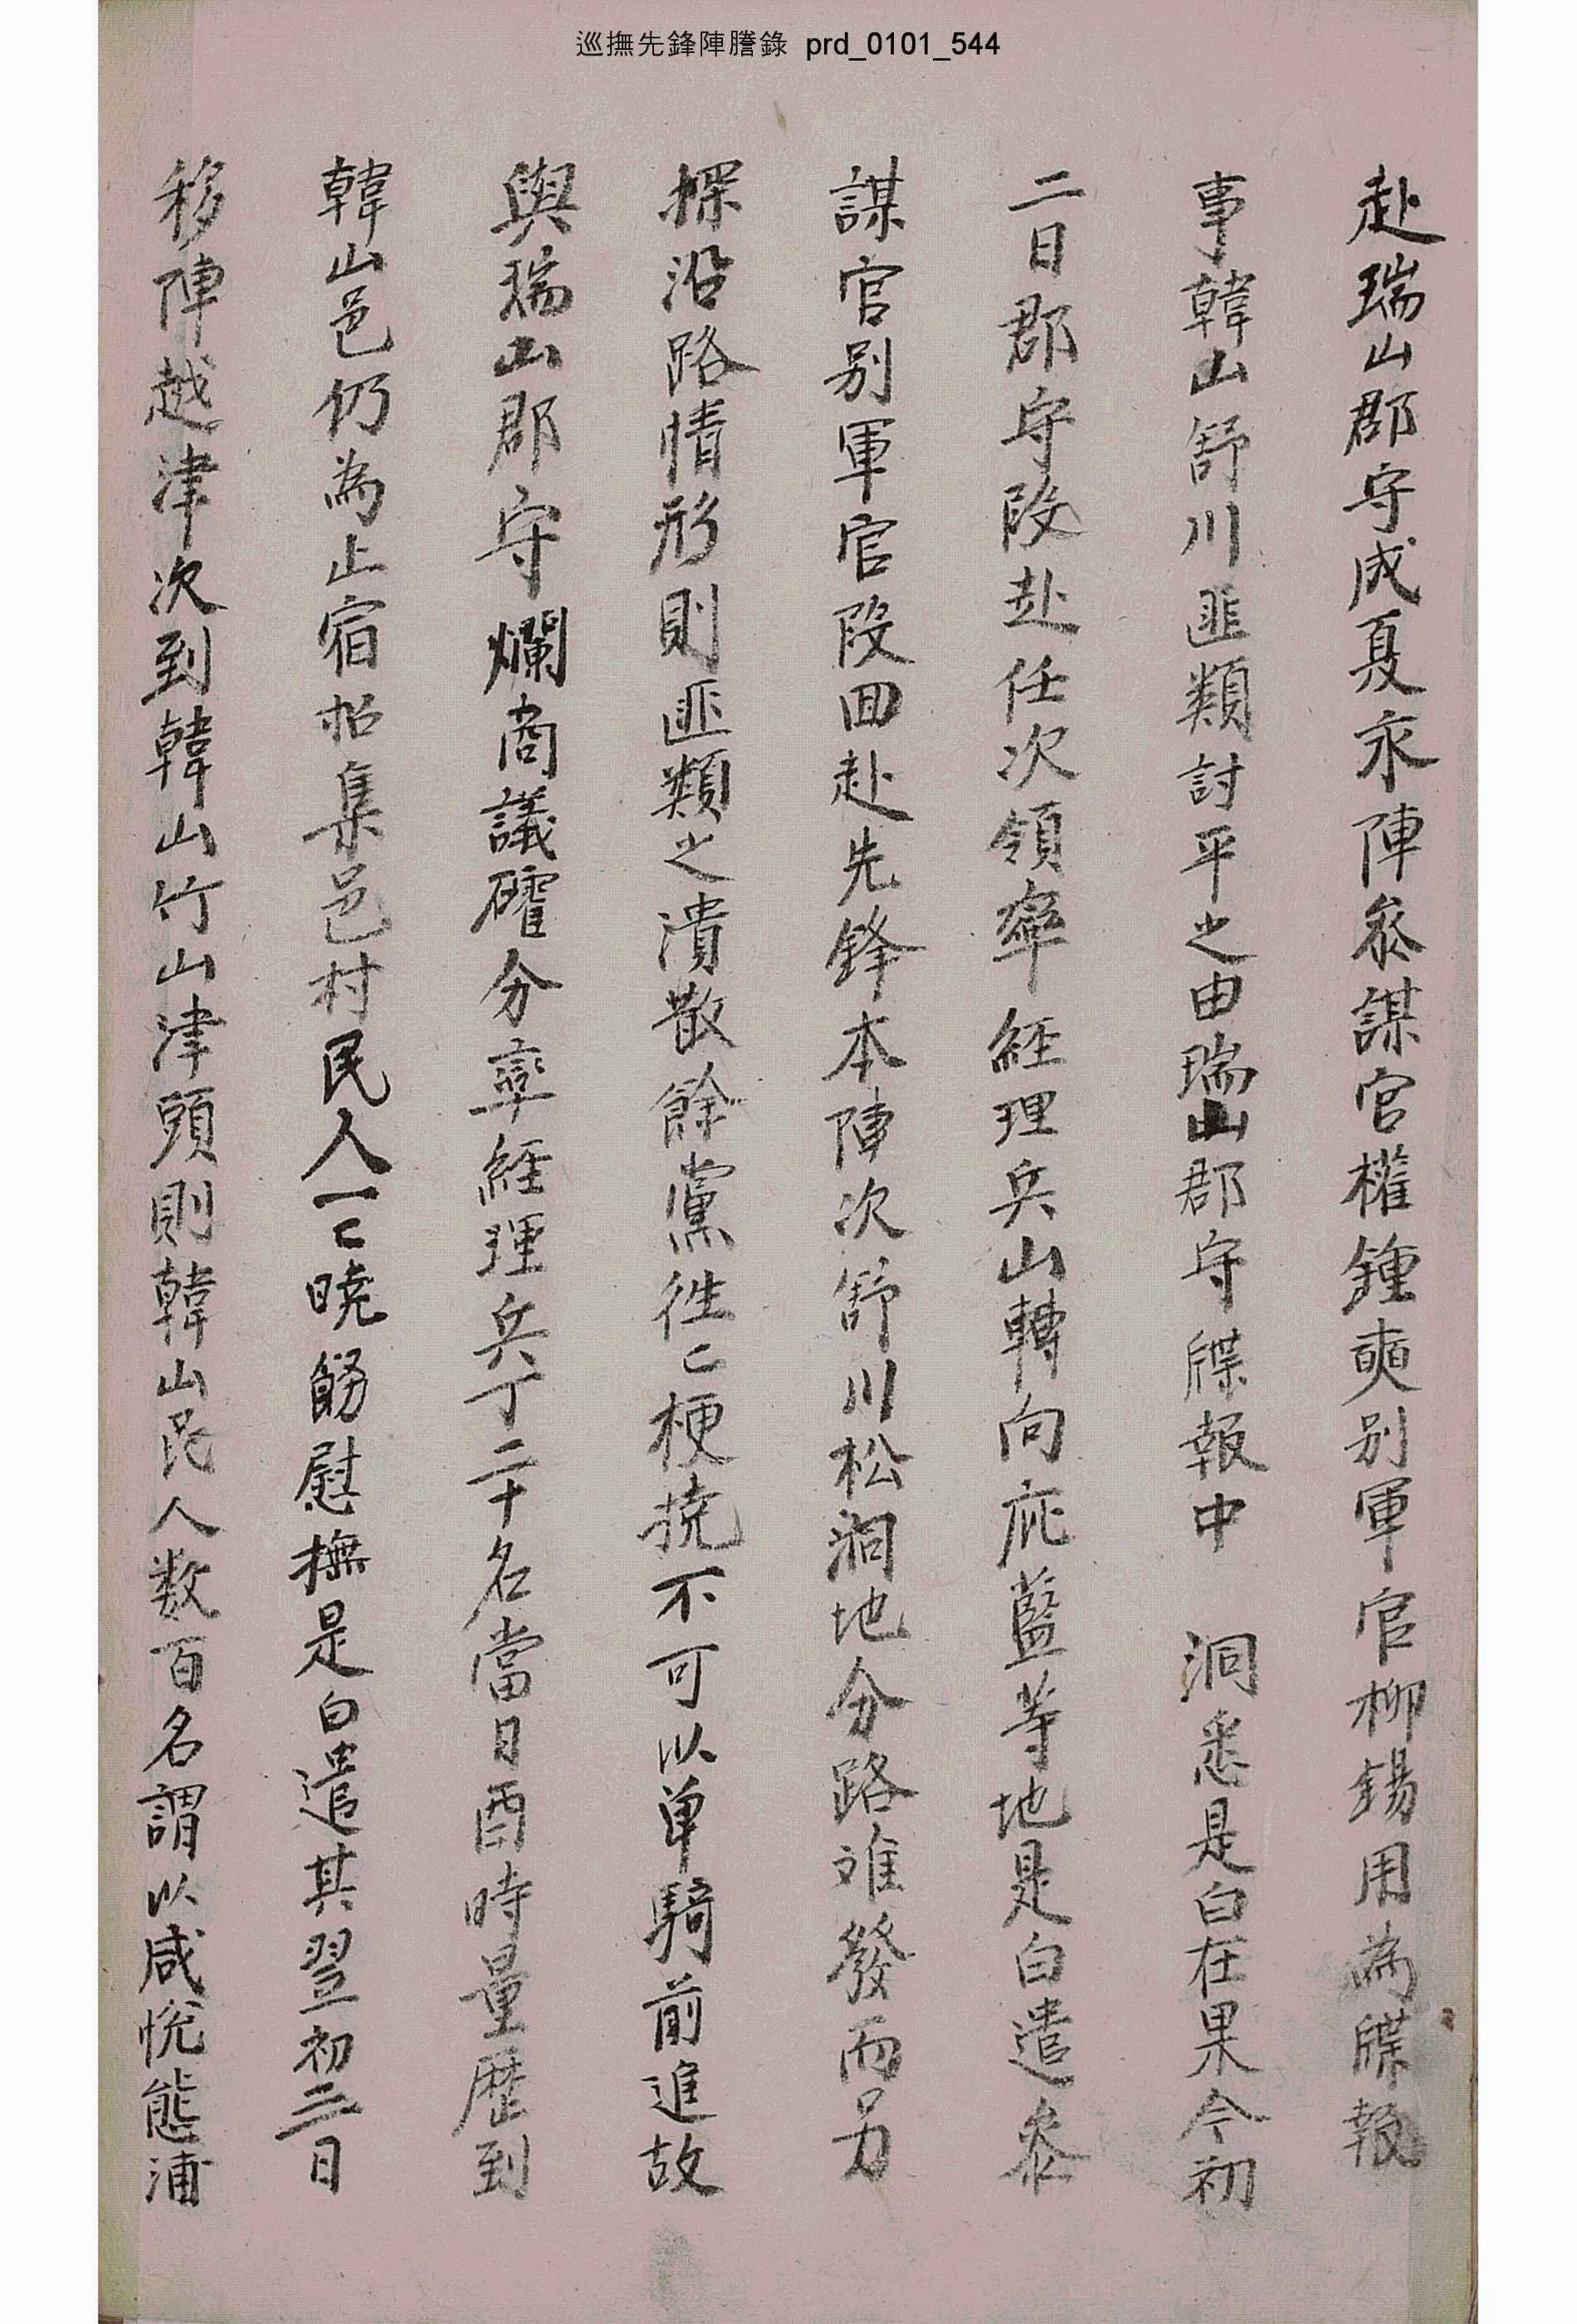 巡撫先鋒陣謄錄 prd_0101_544
赴瑞山郡守成夏永陣叅謀官權鍾奭別軍官柳錫用為牒報
事韓山舒川匪類討平之由瑞山郡守牒報中 洞悉是白在果今初
二日郡守段赴任次領率経理兵山轉向庇藍等地是白遣叅
謀官別軍官段回赴先鋒本陣次舒川松洞地分路难發而另
探沿路情形則匪類之潰散餘黨徃〻梗撓不可以单騎前進故
與瑞山郡守爛商議確分率經理兵丁二十名當日酉時量歷到
韓山邑仍為止宿招集邑村民人一〻曉飭慰撫是白遣其翌初三日
移陣越津次到韓山竹山津頭則韓山民人数百名謂以咸悅態浦